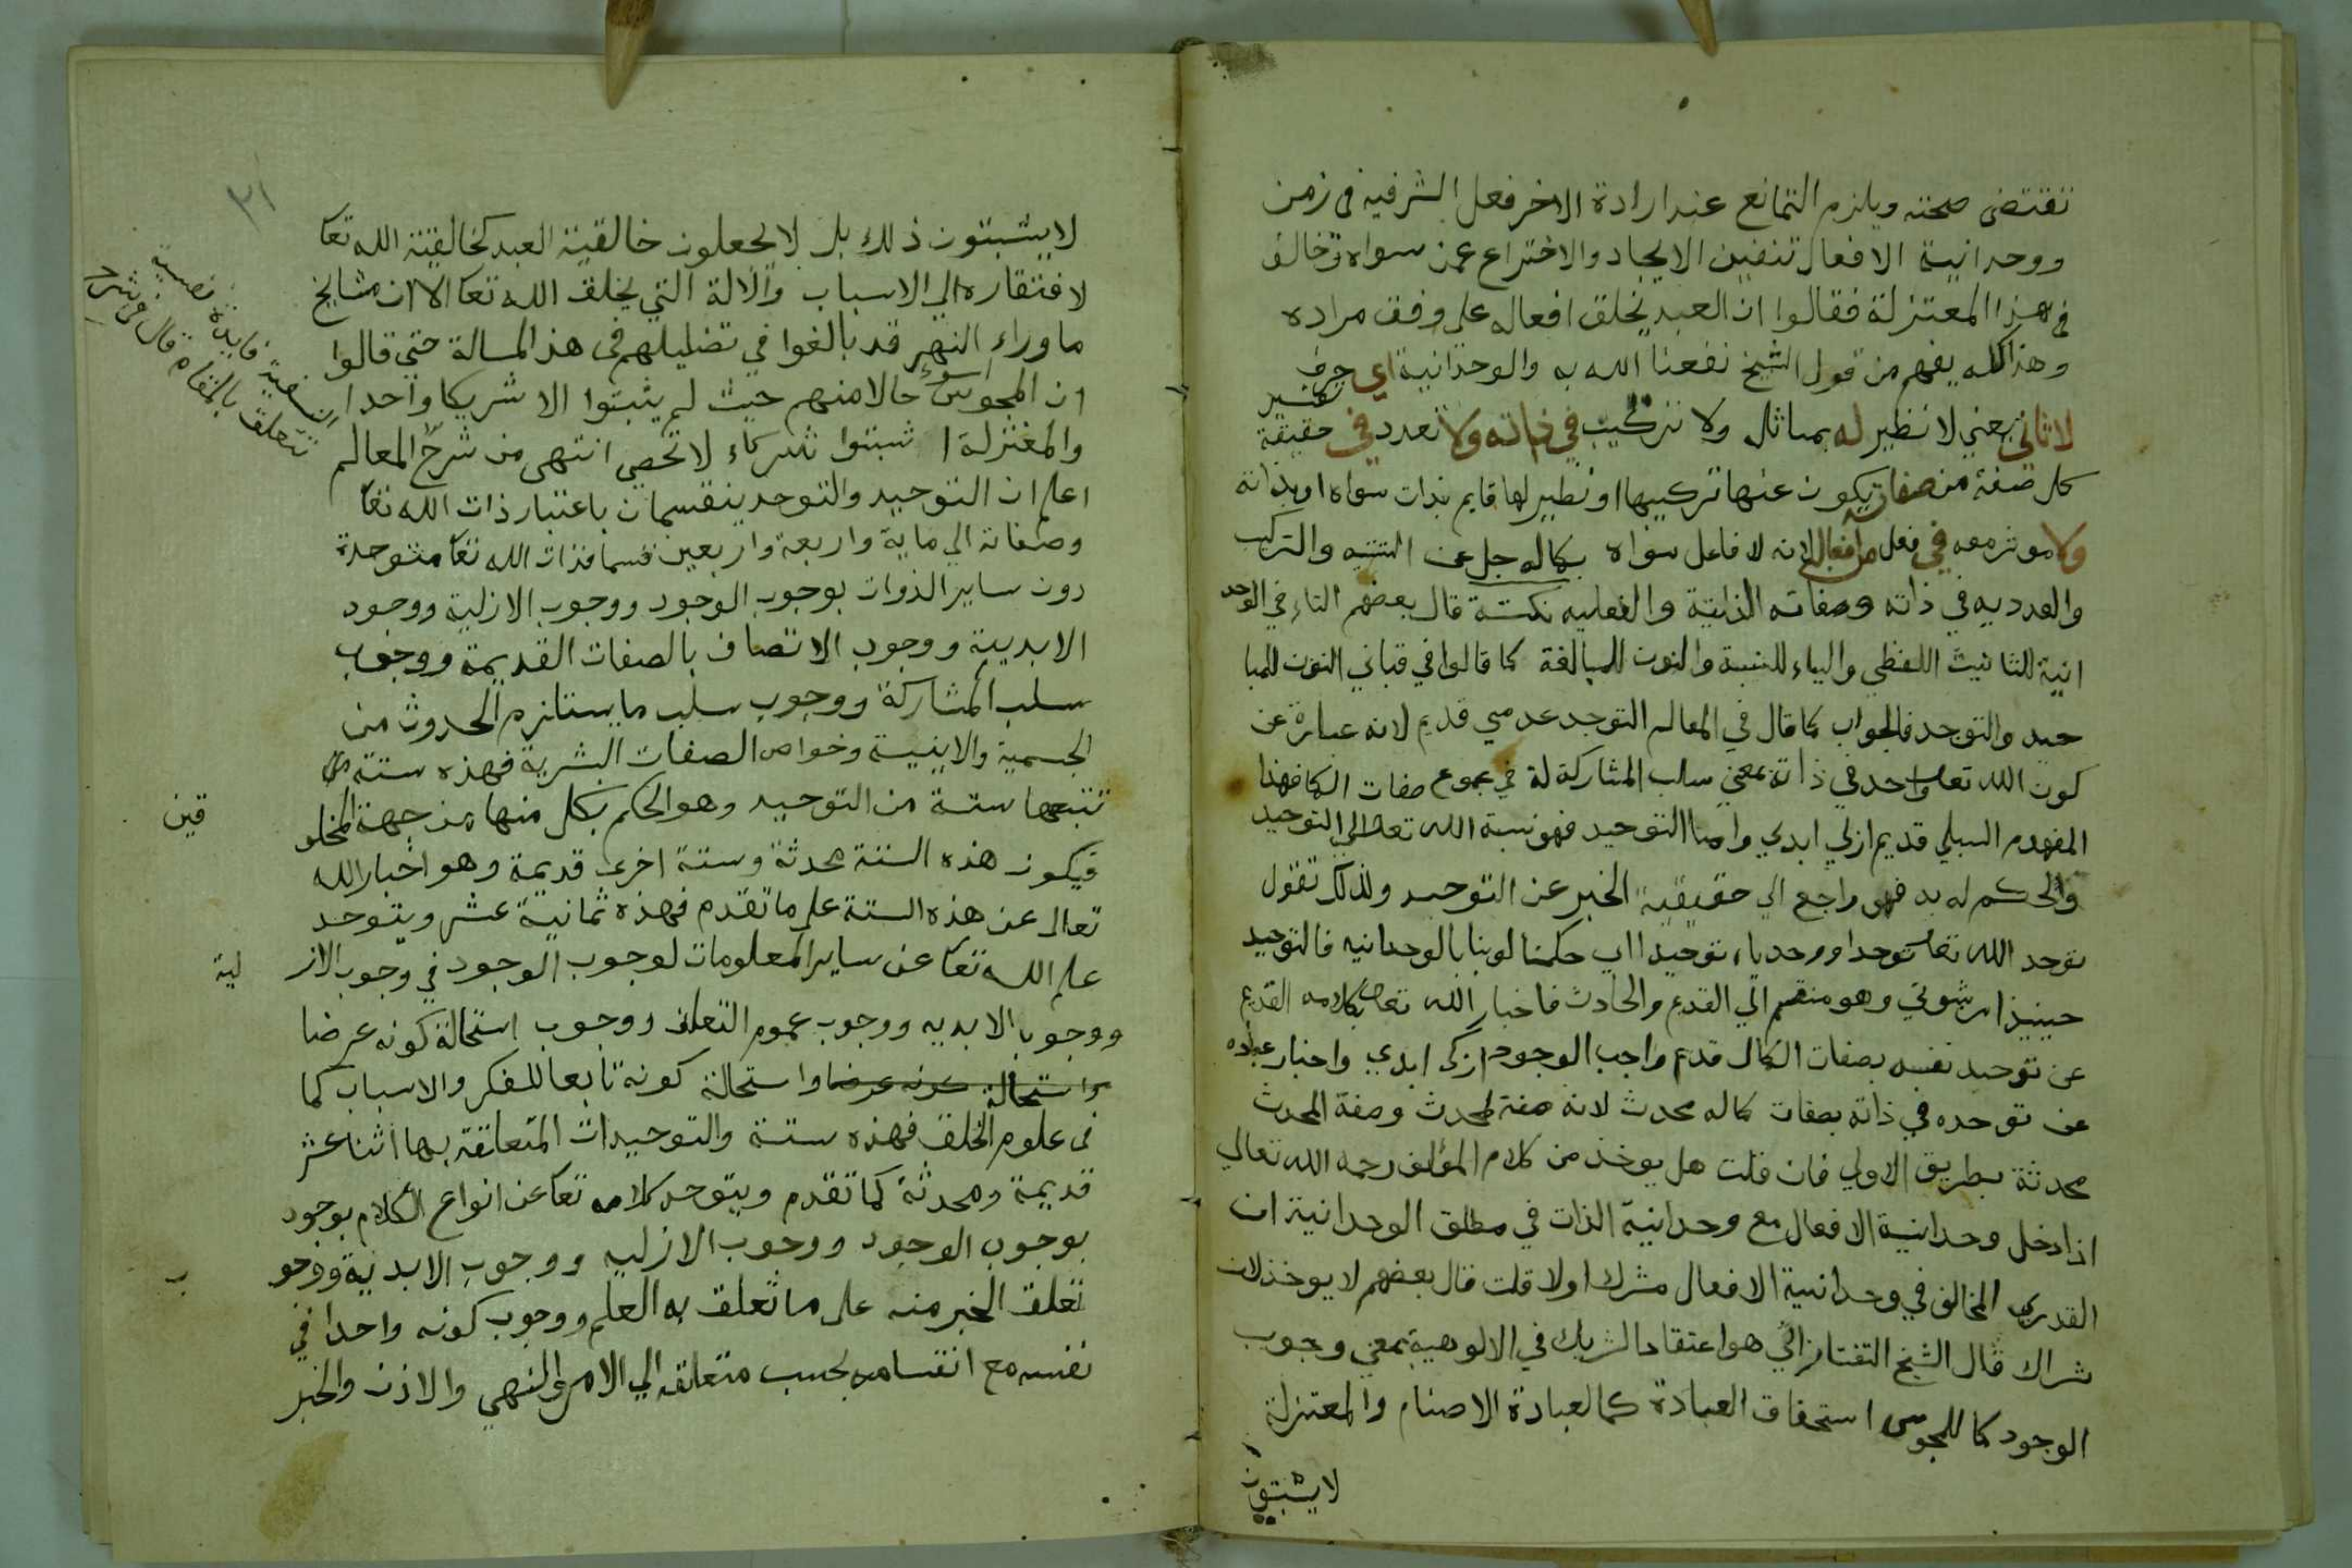 تقتضى صحته ويلزم التمانع عند ارادة الاخر فعل الشر فيه فى زمن
ووحدانية الافعال تنفين الايجاد والاختراع عمن سواه وخالف
فى هذا المعتزلة فقالوا ان العبد يخلق افعاله على وفق مراده
وهذا كله يفهم من قول الشيخ نفعنا الله به والوحدانية اي حرف تفسير
لا ثاني يعني لا نظير له بمماثل ولا تركيب في ذاته ولا تعدد في حقيقة
كل صفة من صفاته يكون عنها تركيبها او نظير لها قايم بذات سواه او بذاته
ولا موثر معه في فعل من افعاله لانه لا فاعل سواه بكماله جل عن التثنيه والتركيب
والعدديه في ذاته وصفاته الذاتية والفعليه نكتة قال بعضهم التاء في الوحد
انية للتانيث اللفظي والياء للنسبة والنون للمبالغة كما قالوا في قباني النون للمبا
حيد والتوحد فالجواب كما قال في المعالم التوحد عدمي قديم لانه عبارة عن
كون الله تعا واحد في ذاته بمعنى سلب المشاركة له في مجموع صفات الكما فهذا
المفهوم السلبي قديم ازلي ابدي واما التوحيد فهو نسبة الله تعا الي التوحيد
والحكم له به فهو راجع الي حقيقية الخبر عن التوحيد ولذلك تقول
توحد الله تعا توحدا ووحدناه توحيدا اي حكمنا لربنا بالوحدانيه فالتوحيد
حينيذ امر ثبوتي وهو منقسم الي القديم والحادث فاخبار الله تعا بكلامه القديم
عن توحيد نفسه بصفات الكمال قديم واجب الوجود ازلي ابدي واخبار عباده
عن توحده في ذاته بصفات كماله محدث لانه صفة لمحدث وصفة المحدث
محدثة بطريق الاولي فان قلت هل يوخذ من كلام المؤلف رحمه الله تعالي
اذا دخل وحدانية الافعال مع وحدانية الذات في مطلق الوحدانية ان
القدري المخالف في وحدانية الافعال مشرك اولا قلت قال بعضهم لا يوخذ لان
شراك قال الشيخ التفتازاني هو اعتقاد الشريك في الالوهية بمعني وجوب
الوجود كما للمجوس استحقاق العبادة كما لعبادة الاصنام والمعتزلة
لا يثبتون
٣١
لا يثبتون ذلك بل لا يجعلون خالقية العبد كخالقية الله تعا
لافتقاره الي الاسباب والالة التي يخلق الله تعا الا ان مشايخ
ماوراء النهر قد بالغوا في تضليلهم فى هذ المسالة حتي قالوا
ان المجوس اسوء حالا منهم حيث لم يثبتوا الا شريكا واحدا
والمعتزلة اثبتوا شركاء لا تحصي انتهى من شرح المعالم
اعلم ان التوحيد والتوحد ينقسمان باعتبار ذات الله تعا
وصفاته الي ماية واربعة واربعين قسما فذات الله تعا متوحدة
دون ساير الذوات بوجوب الوجود ووجوب الازلية ووجود
الابديية ووجوب الاتصاف بالصفات القديمة ووجوب
سلب المشاركة ووجوب سلب ما يستلزم الحدوث من
الجسمية والاينية وخواص الصفات البشرية فهذه ستة
تتبعها ستة من التوحيد وهو الحكم بكل منها من جهة المخلو
قين
فيكون هذه الستة محدثة وستة اخرى قديمة وهو اخبار الله
تعالى عن هذه الستة على ما تقدم فهذه ثمانية عشر ويتوحد
علم الله تعا عن ساير المعلومات لوجوب الوجود في وجوب الاز
لية
ووجوب الابديه ووجوب عموم التعلق ووجوب استحالة كونه عرضا
واستحالة كونه عرضا واستحالة كونه تابعا للفكر والاسباب كما
فى علوم الخلق فهذه ستة والتوحيدات المتعلقة بها اثنا عشر
قديمة ومحدثة كما تقدم ويتوحد كلامه تعا عن انواع الكلام بوجود
بوجوب الوجود ووجوب الازليه ووجوب الابدية ووجو
ب
تعلق الخبر منه على ما تعلق به العلم ووجوب كونه واحدا في
نفسه مع انقسامه بحسب متعلقه الي الامر والنهي والاذن والخبر
فايدة نفسية
تتعلق بالمقام قال في شرح